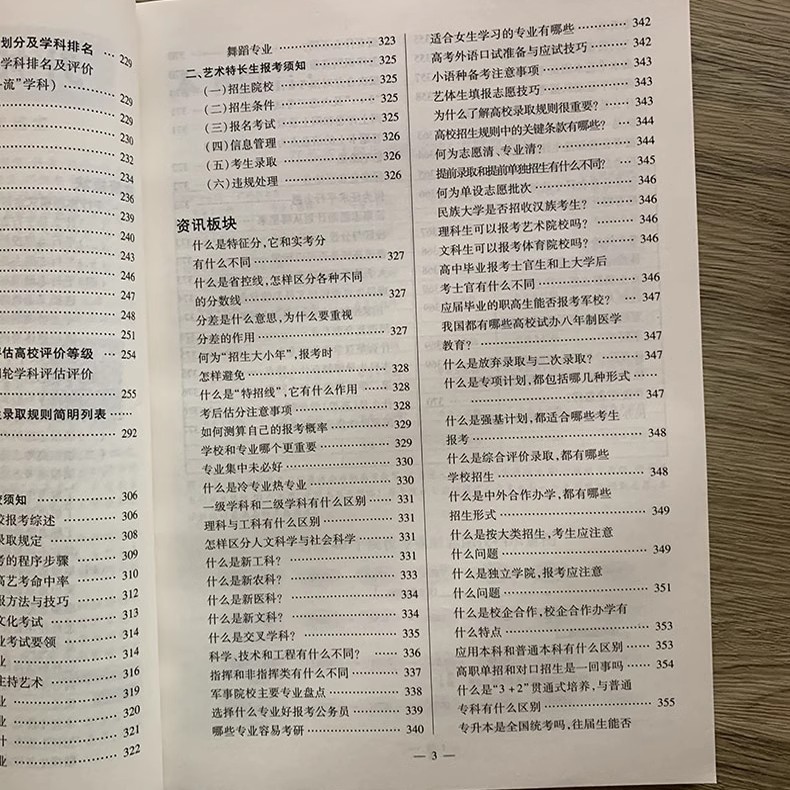 划分及学科排名
229
学科排名及评价
流”学科）
229
229
230
232
234
234
236
239
240
243
246
247
248
251
评估高校评价等级 254
轮学科评估评价
255
录取规则简明列表
292
须知 306
校报考综述 306
录取规定 308
考的程序步骤 309
高艺考命中率 310
报方法与技巧 312
文化考试 314
业考试要领 314
业 314
主持艺术 316
业 319
业 320
计 321
业 322
舞蹈专业 323
二、艺术特长生报考须知 325
（一）招生院校 325
（二）招生条件 325
（三）报名考试 325
（四）信息管理 326
（五）考生录取 326
（六）违规处理 326
资讯板块
什么是特征分，它和实考分
有什么不同 327
什么是省控线，怎样区分各种不同
的分数线 327
分差是什么意思，为什么要重视
分差的作用 327
何为“招生大小年”，报考时
怎样避免 328
什么是“特招线”，它有什么作用 328
考后估分注意事项 328
如何测算自己的报考概率 329
学校和专业哪个更重要 329
专业集中未必好 330
什么是冷专业热专业 330
一级学科和二级学科有什么区别 331
理科与工科有什么区别 331
怎样区分人文科学与社会科学 331
什么是新工科？ 331
什么是新农科？ 333
什么是新医科？ 334
什么是新文科？ 334
什么是交叉学科？ 335
科学、技术和工程有什么不同？ 336
指挥和非指挥类有什么不同 337
军事院校主要专业盘点 338
选择什么专业好报考公务员 339
哪些专业容易考研 340
适合女生学习的专业有哪些 342
高考外语口试准备与应试技巧 342
小语种备考注意事项 343
艺体生填报志愿技巧 343
为什么了解高校录取规则很重要？ 343
高校招生规则中的关键条款有哪些？ 344
何为志愿清、专业清？ 344
提前录取和提前单独招生有什么不同？ 345
何为单设志愿批次 346
民族大学是否招收汉族考生？ 346
理科生可以报考艺术院校吗？ 346
文科生可以报考体育院校吗？ 346
高中毕业报考士官生和上大学后
考士官有什么不同 346
应届毕业的职高生能否报考军校？ 347
我国都有哪些高校试办八年制医学
教育？ 347
什么是放弃录取与二次录取？ 347
什么是专项计划，都包括哪几种形式
347
什么是强基计划，都适合哪些考生
报考 348
什么是综合评价录取，都有哪些
学校招生 348
什么是中外合作办学，都有哪些
招生形式 349
什么是按大类招生，考生应注意
什么问题 349
什么是独立学院，报考应注意
什么问题 351
什么是校企合作，校企合作办学有
什么特点 353
应用本科和普通本科有什么区别 353
高职单招和对口招生是一回事吗 354
什么是“3+2”贯通式培养，与普通
专科有什么区别 355
专升本是全国统考吗，往届生能否
— 3 —